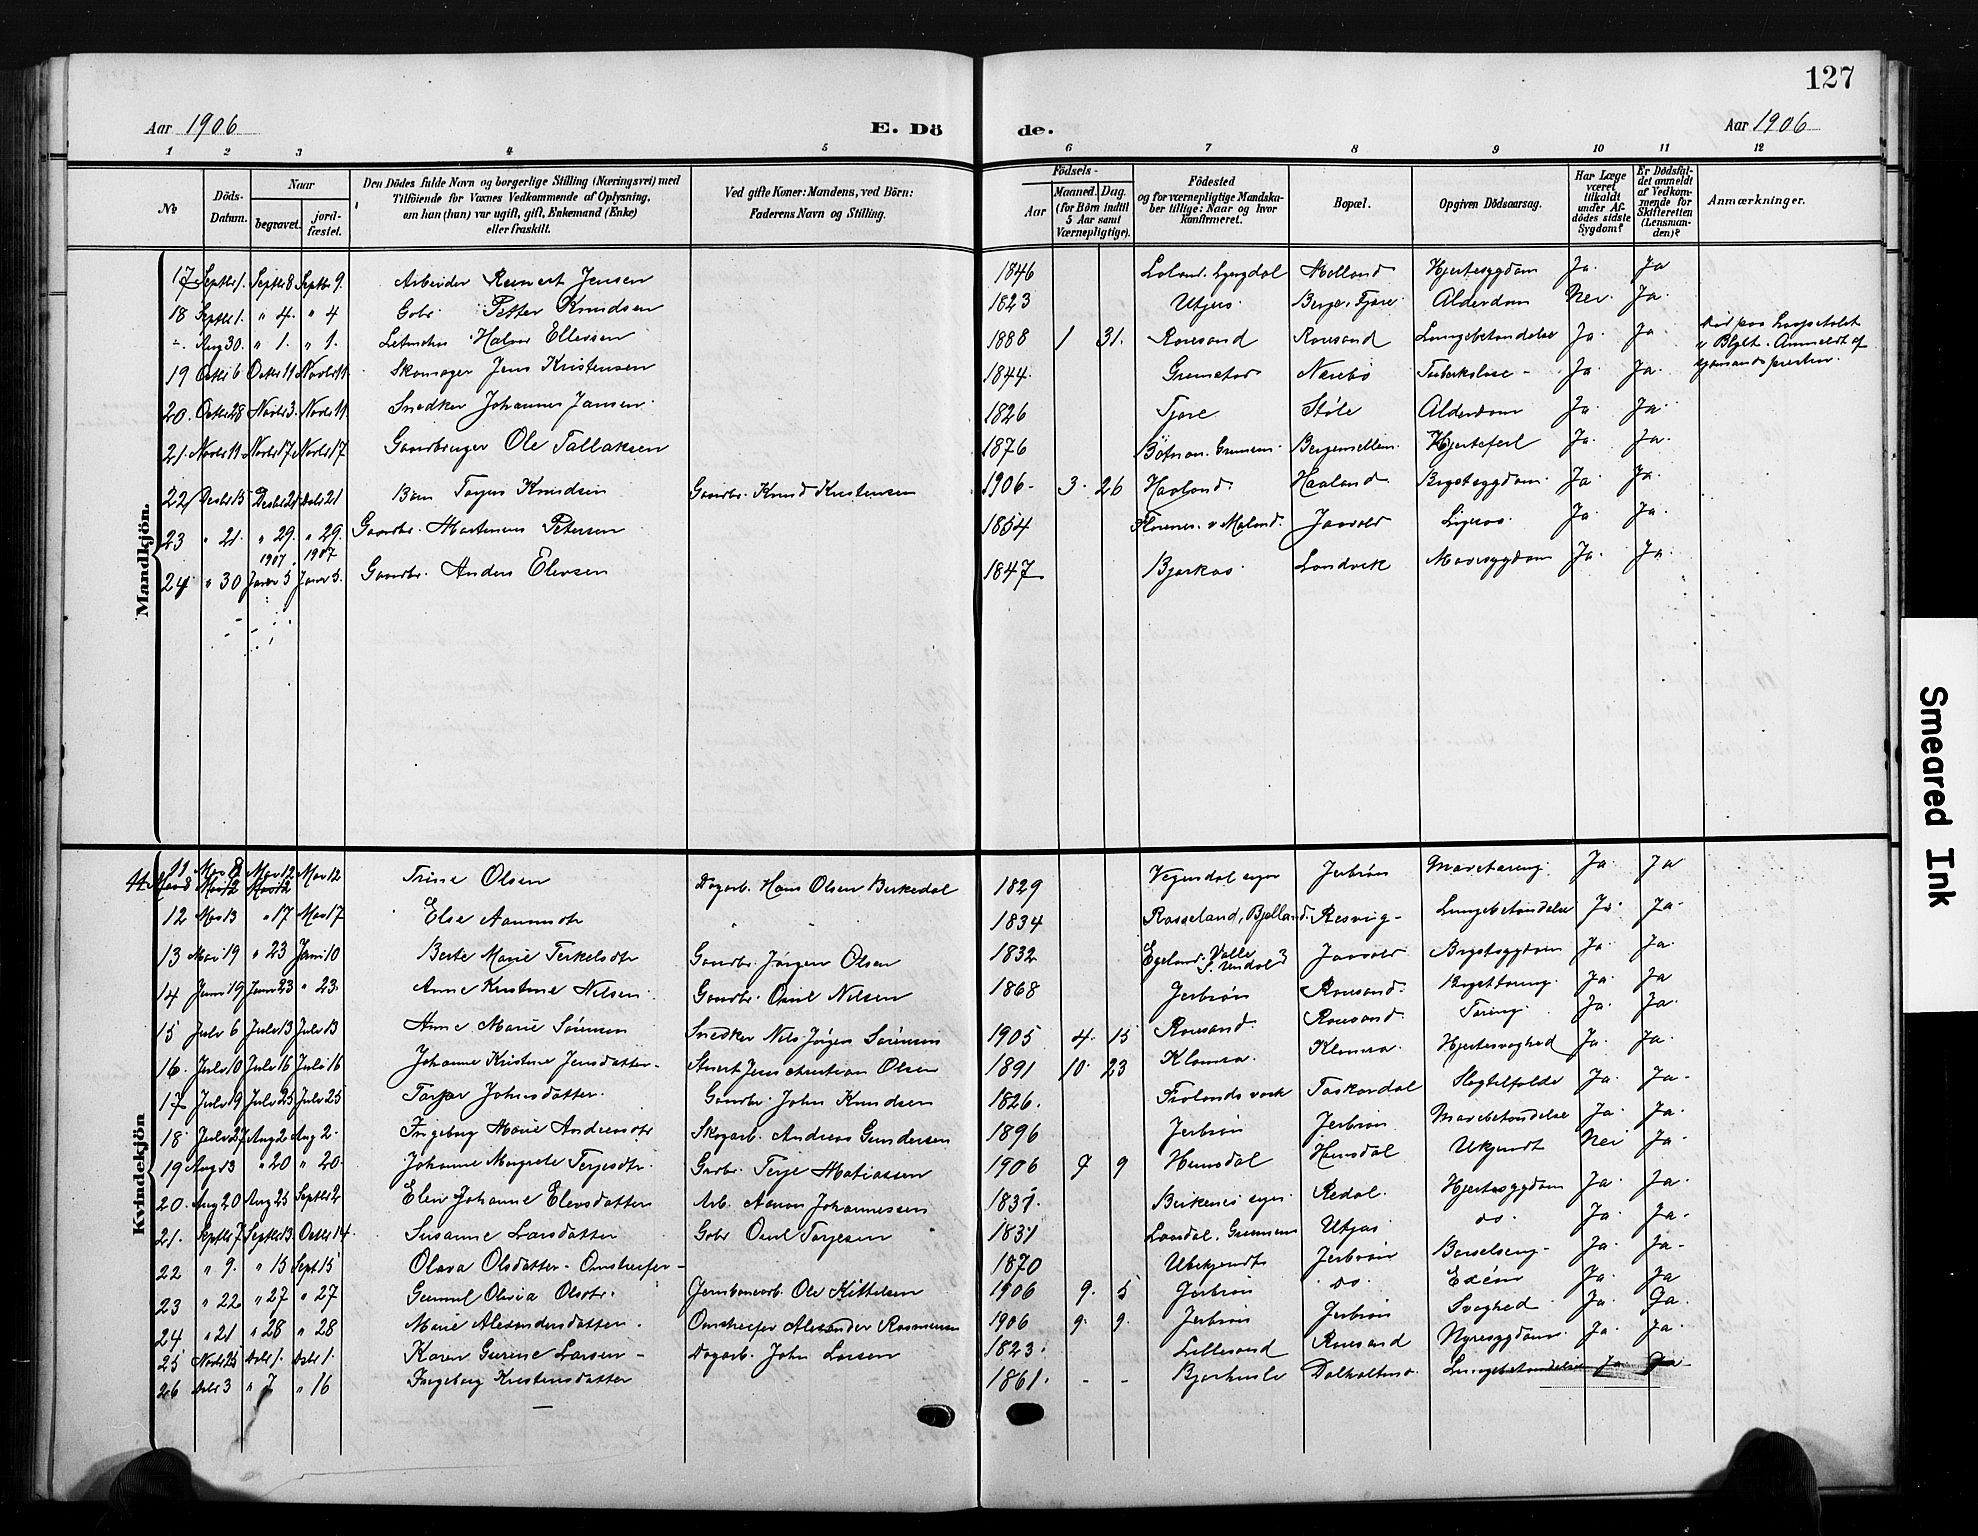 127
Aar 1906 E. Dö de. Aar 1906
1 2 3 4 5 6 7 8 9 10 11 12
№
Döds-Datum.
Naar
begravet.
jord-fæstet.
Den Dödes fulde Navn og borgerlige Stilling (Næringsvei) med
Tilföiende for Voxnes Vedkommende af Oplysning,
om han (hun) var ugift, gift, Enkemand (Enke)
eller fraskilt.
Ved gifte Koner: Mandens, ved Börn:
Faderens Navn og Stilling.
Födsels-
Aar
Maaned. Dag.
(for Börn indtil
5 Aar samt
Værnepligtige).
Födested
og for værnepligtige Mandska-
ber tillige: Naar og hvor
konfirmeret.
Bopæl.
Opgiven Dödsaarsag.
Har Læge
været
tilkaldt
under Af-
dödes sidste
Sygdom?
Er Dödsfal-
det anmeldt
af Vedkom-
mende for
Skifteretten
(Lensman-
den)?
Anmærkninger.
Mandkjön.
17 Septbr 1. Septbr 8 Septbr 9. Arbeider Reinert Jensen 1846 Molland Hjertesygdom Ja. Ja
18 Septbr 1. " 4. " 4 Gbr. Petter Knudsen 1823 Alderdom Nei. Ja.
Aug 30. " 1. " 1. Halvor Ellevsen 1888 1 31. Roresand Roresand Lungebetændelse Ja. Ja.
19 Octbr 6 Octbr 11 Novbr 11 Skomager Jens Kristensen 1844. Grimstad Næsebø Tuberkulose - Ja. Ja.
20. Octbr 28 Novbr 3. Novbr 11 Snedker Johannes Jansen. 1826 Fjære Støle Alderdom Ja. Ja
21. Novbr 11 Novbr 17 Novbr 17 Gaardbruger Ole Tallaksen 1876 Hjertefeil Ja. Ja.
22 Desbr 13 Desbr 21 Desbr 21 Barn Torjus Knudsen Gaardbr. Knud Kristensen 1906. 3. 26 Haaland. Haaland. Brystsygdom. Ja. Ja.
23 " 21. " 29. " 29. Gaardbr. Martinus Petersen 1854 Jaavold Ja. Ja.
1907 1907
24 " 30 Janr 5 Janr 5. Gaardbr. Anders Elevsen 1847 Bjorkaas Landvik Mavesygdom Ja. Ja.
Kvindekjön
11 Mai 8 Mai 12 Mai 12 Trine Olsen Dagarb. Hans Olsen Birkedal 1829 Jerbrön Mavetæring. Ja. Ja
12 Mai 13 " 17 Mai 17 Else Aanunsdtr 1834 Rosseland, Bjelland. Resvig - Lungebetændelse Ja. Ja.
13 Mai 19 " 23 Juni 10 Berte Marie Terkelsdtr Gaardbr. Jørgen Olsen 1832 Egeland. Valle S. Undal? Jaavold Brystsygdom Ja. Ja.
14 Juni 19 Juni 23 " 23. Anne Kristine Nilsen. Gaardbr. Omil Nilsen 1868 Jerbrön Roresand. Brysttæring. Ja. Ja
15 Juli 6 Juli 13 Juli 13 Anne Marie Sørensen Snedker Nils Jørgen Sørensen 1905 4. 15 Roresand. Roresand. Tæring. Ja. Ja.
16. Juli 10 Juli 16 Juli 16 Johanne Kristine Jensdatter - Jens Christian Olsen 1891 10. 23 Klomra. Klomra. Hjertesvaghed Ja. Ja.
17 Juli 19 Juli 25 Juli 25 Johnsdatter. Gaardbr. John Knudsen 1826. Frolands værk Taskerdal Slagtilfælde Ja. Ja.
18. Juli 27 Aug 2 Aug 2. Ingeborg Marie Andreasdtr Skogarb. Andreas Gundersen 1896 Jerbrön Jerbrön. Mavebetændelse Ja. Ja.
19 Aug 13 " 20 " 20. Johanne Margrete Terjesdtr. Gardbr. Terje Matiassen 1906 7 9 Hemsdal Hemsdal Ukjendt Nei Ja.
20. Aug 20 Aug 25 Septbr 2 Elen Johanne Elevsdatter Arb. Aanon Johannessen 1837. Birkenes Redal. Hjertesygdom Ja. Ja.
21. Septbr 7 Septbr 13 Octbr 14. Susanne Larsdatter Gbr Omil Torjesen 1831 do. Ja. Ja.
22 " 9. " 15 Sept 15 Olava Olsdatter - Omstreifer - 1870 Ubekjendt Jerbrön Barselseng - Ja. Ja.
23 " 22. " 27 " 27 Gunnul Olava Olsdtr. Jernbanearb. Ole Kittelsen 1906 9. 5 Jerbrön do. Exém Ja. Ja
24 " 21 " 28 " 28 Marie Alexandersdatter. Omstreifer Alexander Rasmussen 1906 9. 9. Jerbrön Jerbrön Svaghed. Ja. Ja.
25 Novbr 25 Desbr 1. Desbr 1. Karen Gurine Larsen - Dagarb. John Larsen 1823. Lillesand Roresand Nyresygdom. Ja. Ja.
26 Desbr 3 " 7 " 16 Ingeborg Kristensdatter 1861. - - Lungebetændelse Ja Ja
Smeared Ink